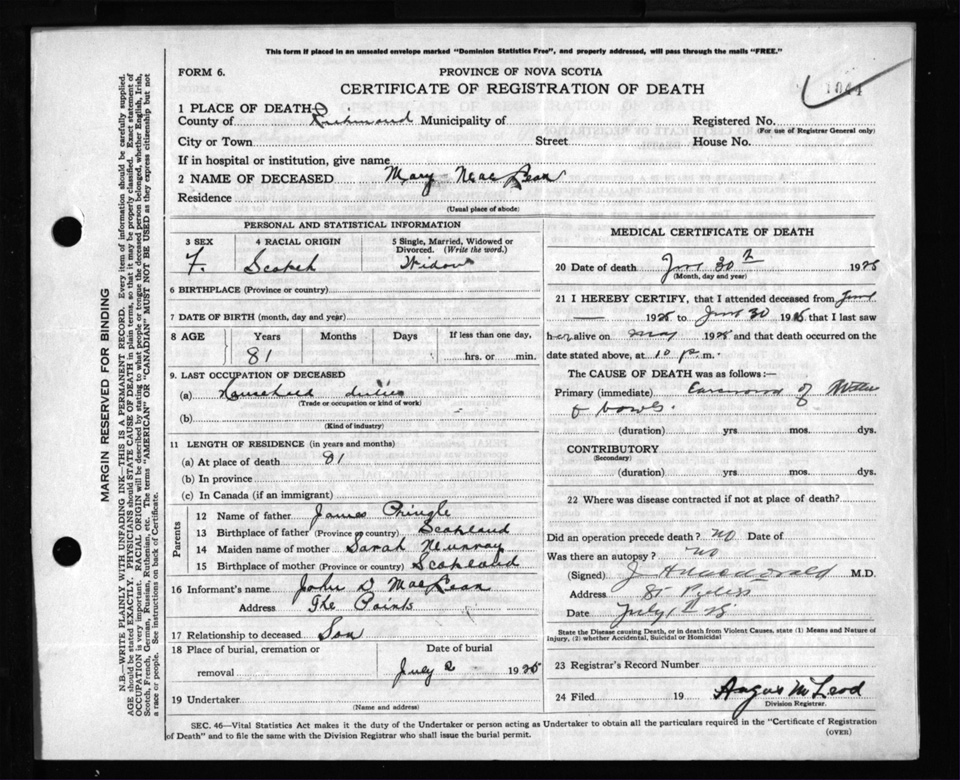 This form if placed in an unsealed envelope marked "Dominion Statistics Free", and properly addressed, will pass through the mails "FREE."
FORM 6.
PROVINCE OF NOVA SCOTIA
CERTIFICATE OF REGISTRATION OF DEATH
1044
1 PLACE OF DEATH
County of Richmond Municipality of
Registered No.
(For use of Registrar General only)
City or Town Street House No.
If in hospital or institution, give name
2 NAME OF DECEASED Mary MacLean
Residence
(Usual place of abode)
PERSONAL AND STATISTICAL INFORMATION
3 SEX 4 RACIAL ORIGIN 5 Single, Married, Widowed or Divorced. (Write the word.)
F. Scotch Widow
6 BIRTHPLACE (Province or country)
7 DATE OF BIRTH (month, day and year)
8 AGE Years Months Days If less than one day,
81 hrs. or min.
9. LAST OCCUPATION OF DECEASED
(a) Household duties
(Trade or occupation or kind of work)
(b)
(Kind of industry)
11 LENGTH OF RESIDENCE (in years and months)
(a) At place of death 81
(b) In province
(c) In Canada (if an immigrant)
Parents
12 Name of father James Pringle
13 Birthplace of father (Province or country) Scotland
14 Maiden name of mother Sarah Murray
15 Birthplace of mother (Province or country) Scotland
16 Informant's name John D MacLean
Address The Points
17 Relationship to deceased Son
18 Place of burial, cremation or removal Date of burial
July 2 1925
19 Undertaker
(Name and address)
MEDICAL CERTIFICATE OF DEATH
20 Date of death June 30th 1925
(Month, day and year)
21 I HEREBY CERTIFY, that I attended deceased from June
1925 to June 30 1925 that I last saw
her alive on May 1925 and that death occurred on the
date stated above, at 10 p.m.
The CAUSE OF DEATH was as follows:—
Primary (immediate) of
bowls.
(duration) yrs. mos. dys.
CONTRIBUTORY
(Secondary)
(duration) yrs. mos. dys.
22 Where was disease contracted if not at place of death?
Did an operation precede death? no Date of
Was there an autopsy? no
(Signed) J A MacDonald M.D.
Address St Peters
Date July 1st 25
State the Disease causing Death, or in death from Violent Causes, state (1) Means and Nature of Injury, (2) whether Accidental, Suicidal or Homicidal
23 Registrar's Record Number
24 Filed 19 Angus McLeod
Division Registrar.
SEC. 46—Vital Statistics Act makes it the duty of the Undertaker or person acting as Undertaker to obtain all the particulars required in the "Certificate of Registration of Death" and to file the same with the Division Registrar who shall issue the burial permit.
(OVER)
MARGIN RESERVED FOR BINDING
N.B.—WRITE PLAINLY WITH UNFADING INK—THIS IS A PERMANENT RECORD. Every item of information should be carefully supplied.
AGE should be stated EXACTLY. PHYSICIANS should STATE CAUSE OF DEATH in plain terms, so that it may be properly classified. Exact statement of
OCCUPATION is very important. RACIAL ORIGIN will be described by stating to what people or tongue the deceased person belonged, whether English, Irish,
Scotch, French, German, Russian, Ruthenian, etc. The terms "AMERICAN" OR "CANADIAN" MUST NOT BE USED as they express citizenship but not
a race or people. See instructions on back of Certificate.